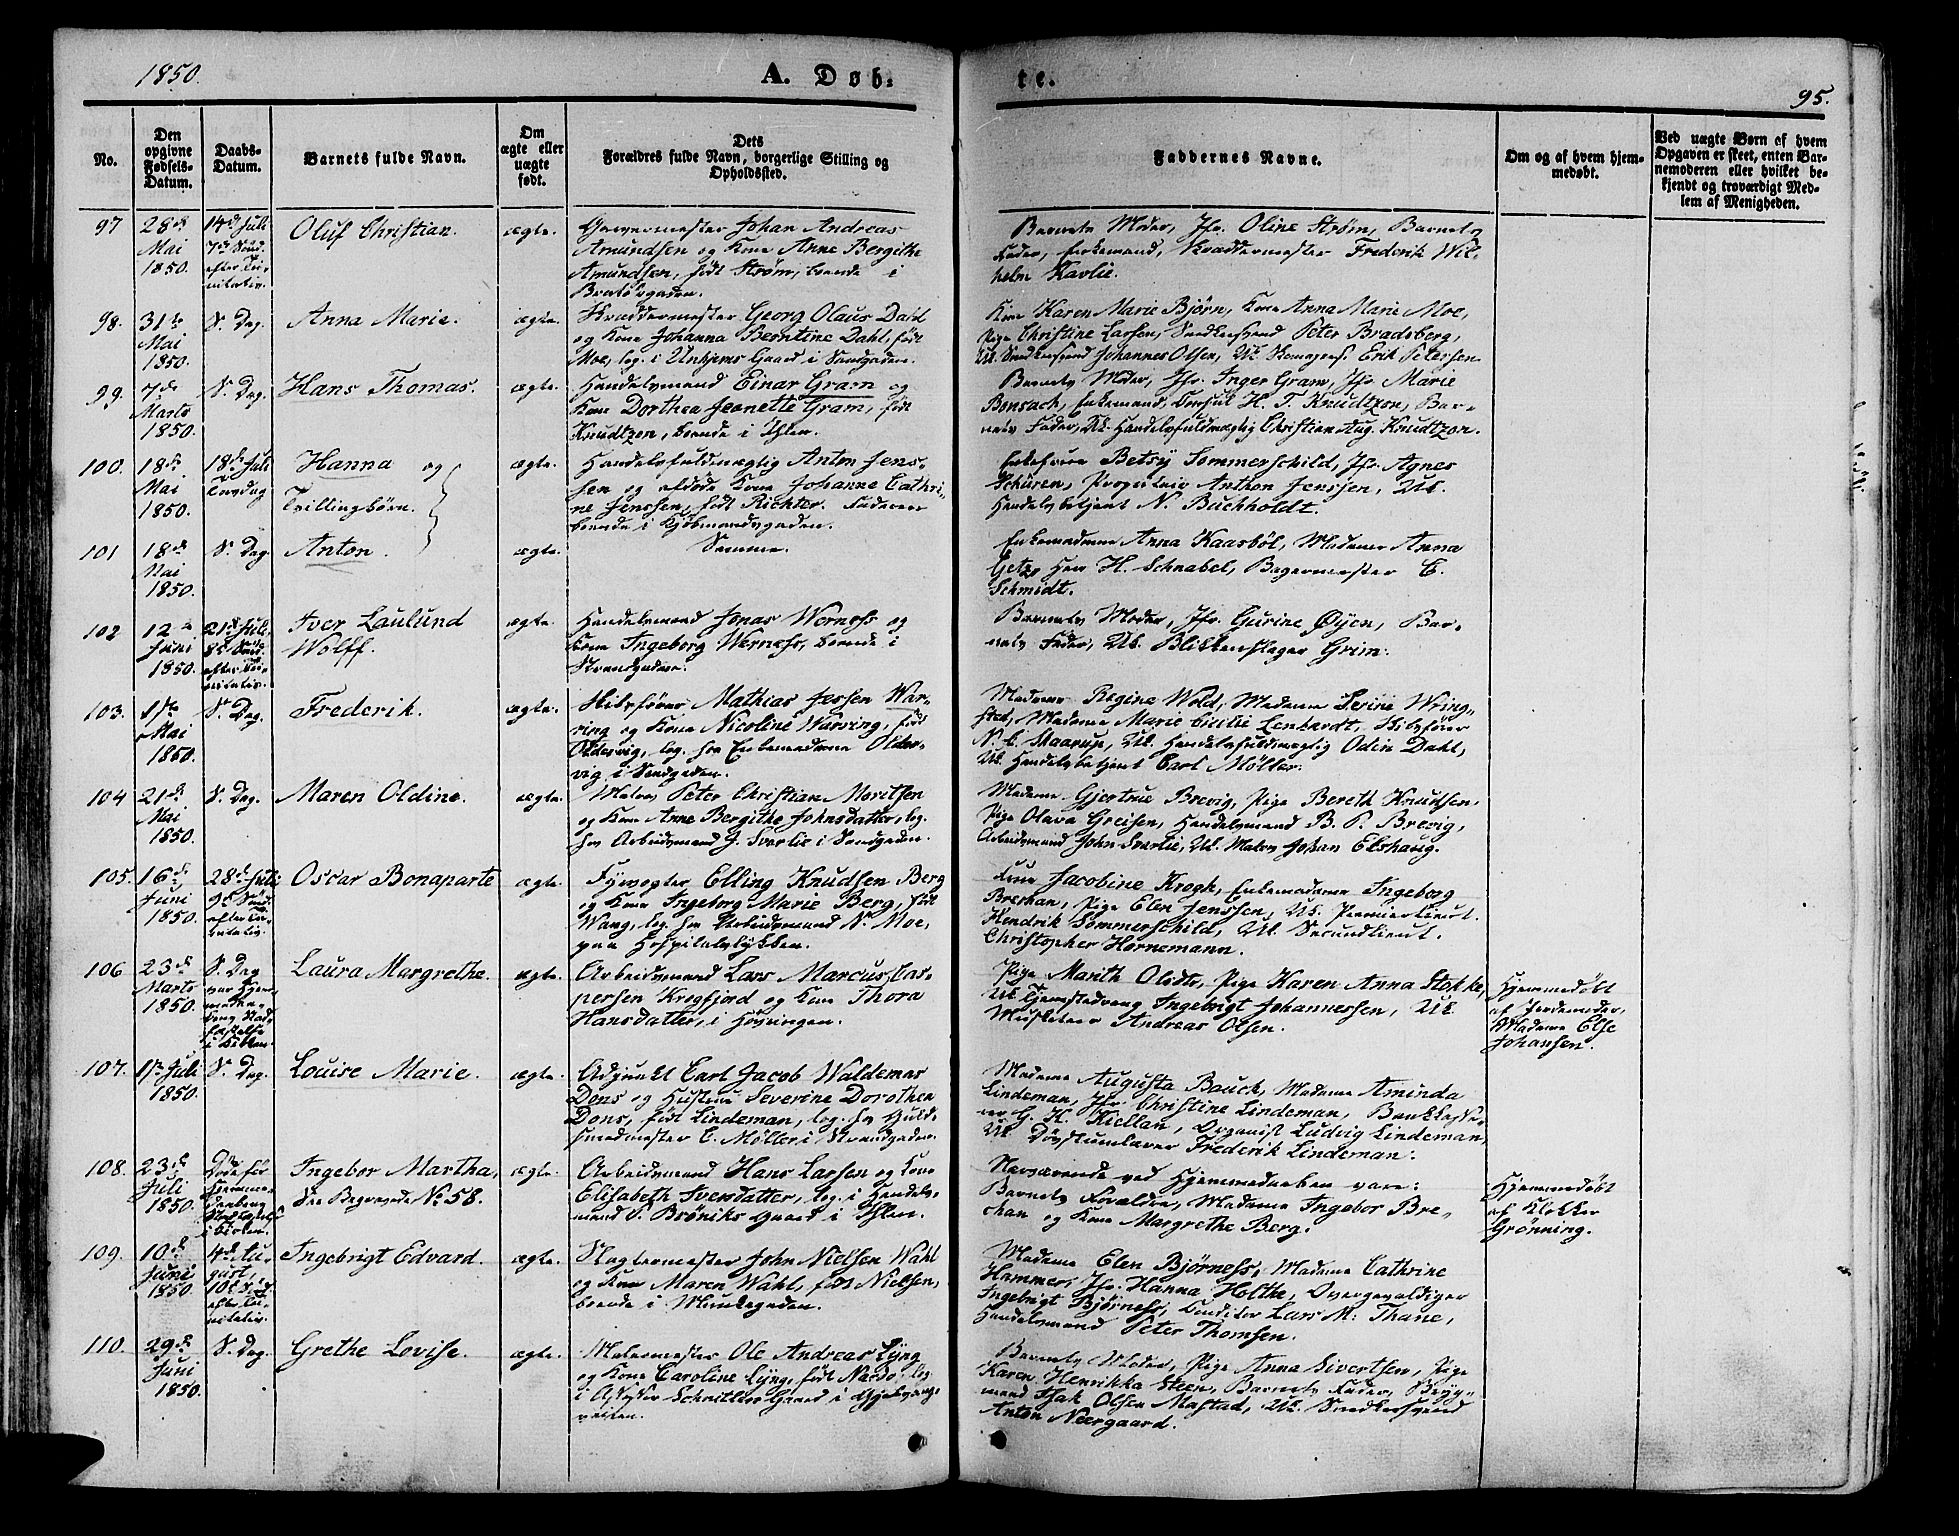 1850.
A. Døb-
te.
95.
No.
Den opgivne Fødsels-Datum.
Daabs-Datum.
Barnets fulde Navn.
Om ægte eller uægte født.
Dets Forældres fulde Navn, borgerlige Stilling og Opholdssted.
Faddernes Navne.
Om og af hvem hjemmedøbt.
Ved uægte Børn af hvem Opgaven er skeet, enten Barnemoderen eller hvilket bekjendt og troværdigt Medlem af Menigheden.
97
28de Mai 1850.
14de Juli 7de Sønd. efter Trinitatis.
Oluf Christian.
ægte.
Garvermester Johan Andreas
Amundsen og Kone Anne Bergithe
Amundsen, født Strøm, boende i
Bratørgaden.
Barnets Moder, Jfr. Oline Strøm, Barnets
Fader, Enkemand, Skræddermester Frederik Wil-
helm Karlie.
98.
31te Mai 1850.
S. Dag.
Anna Marie.
ægte.
Skræddermester Georg Olaus Dahl
og Kone Johanna Berntine Dahl, født
Moe, log. i Unkjems Gaard i Sandgaden.
Kone Karen Marie Bjørn, Kone Anna Marie Moe,
Pige Christine Larsen, Snedkersvend Peter Bradsberg,
Uk. Snedkersvend Johannes Olsen, Uk. Erik Petersen
99.
7de Marts 1850.
S. Dag.
Hans Thomas.
ægte.
Handelsmand Einar Gram og
Kone Dorthea Jeanette Gram, født
Knudtzon, boende i Ihlen.
Barnets Moder, Jfr. Inger Gram, Jfr. Marie
Bonsach, Enkemand, Consul H. T. Knudtzon, Bar-
nets Fader, Uk. Handelsfuldmægtig Christian Aug. Knudtzon.
100.
18de Mai 1850.
18de Juli Torsdag
Hanna og
Tvillingbørn.
ægte.
Handelsfuldmægtig Anton Jens-
sen og afdøde Kone Johanne Cathri-
ne Jenssen, født Richter. Faderen
boende i Kjøbmandsgaden.
Enkefrue Betsy Sommerschild, Jfr. Agnes
Schüren, Proprietair Anthon Jenssen, Uk.
Handelsbetjent N. Buchholdt.
101
18de Mai 1850.
S. Dag
Anton.
ægte.
Samme.
Enkemadame Anna Kaasbøl, Madame Anna
Getz, Herr H. Schnabel, Bagermester C.
Schmidt.
102
12te Juni 1850.
21de Juli, 8de Sønd. efter Trinitatis.
Iver Laulund
Wolff.
ægte.
Handelsmand Jonas Werness og
Kone Ingeborg Werness, boende i
Strandgaden.
Barnets Moder, Jfr. Gurine Øyen, Bar-
nets Fader, Uk. Blikkenslager Grim.
103.
1ste Mai 1850.
S. Dag.
Frederik.
ægte.
Skibsfører Mathias Jessen War-
ring og Kone Nicoline Warring, født
Oldervig, log. hos Enkemadame Older-
vig i Sandgaden.
Madame Regine Wold, Madame Serine Wring-
sted, Madame Marie Emilie Lenhardt, Skibsfører
N. C. Maarup, Uk. Handelsfuldmægtig Odin Dahl,
Uk. Handelsbetjent Carl Möller.
104
21de Mai 1850.
S. Dag.
Maren Oldine.
ægte.
Matros Peter Christian Moritsen
og Kone Anne Bergithe Johnsdatter, log.
hos Arbeidsmand J. Svarlie i Sandgaden.
Madame Gjertrue Brevig, Pige Bereth Knudsen,
Pige Olava Greisen, Handelsmand B. P. Brevig,
Arbeidsmand John Svarlie, Uk. Matros Johan Elshaug.
105.
16de Juni 1850.
28de Juli 9de Sønd. efter Trinitatis.
Oscar Bonaparte
ægte.
Fyrvogter Elling Knudsen Berg
og Kone Ingeborg Marie Berg, født
Wang, log. hos Arbeidsmand N. Moe,
paa Hospitalsløkken.
Frue Jacobine Krogh, Enkemadame Ingeborg
Breshan, Pige Elen Jenssen, Uk. Premierlieut.
Hendrik Sommerschild, Uk. Secundlieut.
Christopher Hornemann.
106
23de Marts 1850.
S. Dag
Laura Margrethe.
ægte.
Arbeidsmand Lars Marcus Cas-
persen Krogfjord og Kone Thora
Hansdatter, i Høvringen.
Pige Marith Olsdtr, Pige Karen Anna Stokke,
Uk. Ingebrigt Johannessen, Uk.
Musketeer Andreas Olsen.
Hjemmedøbt
af Jordemoder,
Madame Else
Johansen.
107.
1ste Juli 1850.
S. Dag.
Louise Marie.
ægte.
Adjunkt Carl Jacob Waldemar
Dons og Hustrue Severine Dorothea
Dons, født Lindeman, log. hos Guld-
smedmester C. Möller i Strandgaden.
Madame Augusta Bauck, Madame Aminda
Lindeman, Jfr. Christine Lindeman, Bankkasse-
rer G. H. Kiellan, Organist Ludvig Lindeman,
Uk. Døvstumlærer Frederik Lindeman.
108.
23de Juli 1850.
Ingebor Martha,
See Begravede No. 58.
ægte.
Arbeidsmand Hans Larsen og Kone
Elisabeth Iversdatter, log. i Handels-
mand S. Brøniks Gaard i Ihlen.
Nærværende ved Hjemmedaaben vare:
Barnets Forældre, Madame Ingebor Bre-
chan og Kone Margrethe Berg.
Hjemmedøbt
af Klokker
Grønning.
109.
10de Juni 1850
4de August, 10de Sønd. efter Trinitatis.
Ingebrigt Edvard.
ægte.
Slagtermester John Nielsen Wahl
og Kone Maren Wahl, født Nielsen,
boende i Munkegaden.
Madame Elen Bjørness, Madame Cathrine
Hammer, Jfr. Hanna Holthe, Overgevaldiger
Ingebrigt Bjørness, Conditor Lars M. Thane,
Handelsmand Peter Thomsen.
110.
29de Juni 1850.
S. Dag.
Grethe Lovise.
ægte.
Malermester Ole Andreas Lyng
og Kone Caroline Lyng, født Nardo, log.
i Assessor Schnitlers Gaard i Hjelvangs-
veiten.
Barnets Moder, Pige Anna Sivertsen, Pige
Karen Henrikka Steen, Barnets Fader, Bryg-
mand Isak Olsen Mastad, Uk. Snedkersvend
Anton Neergaard.